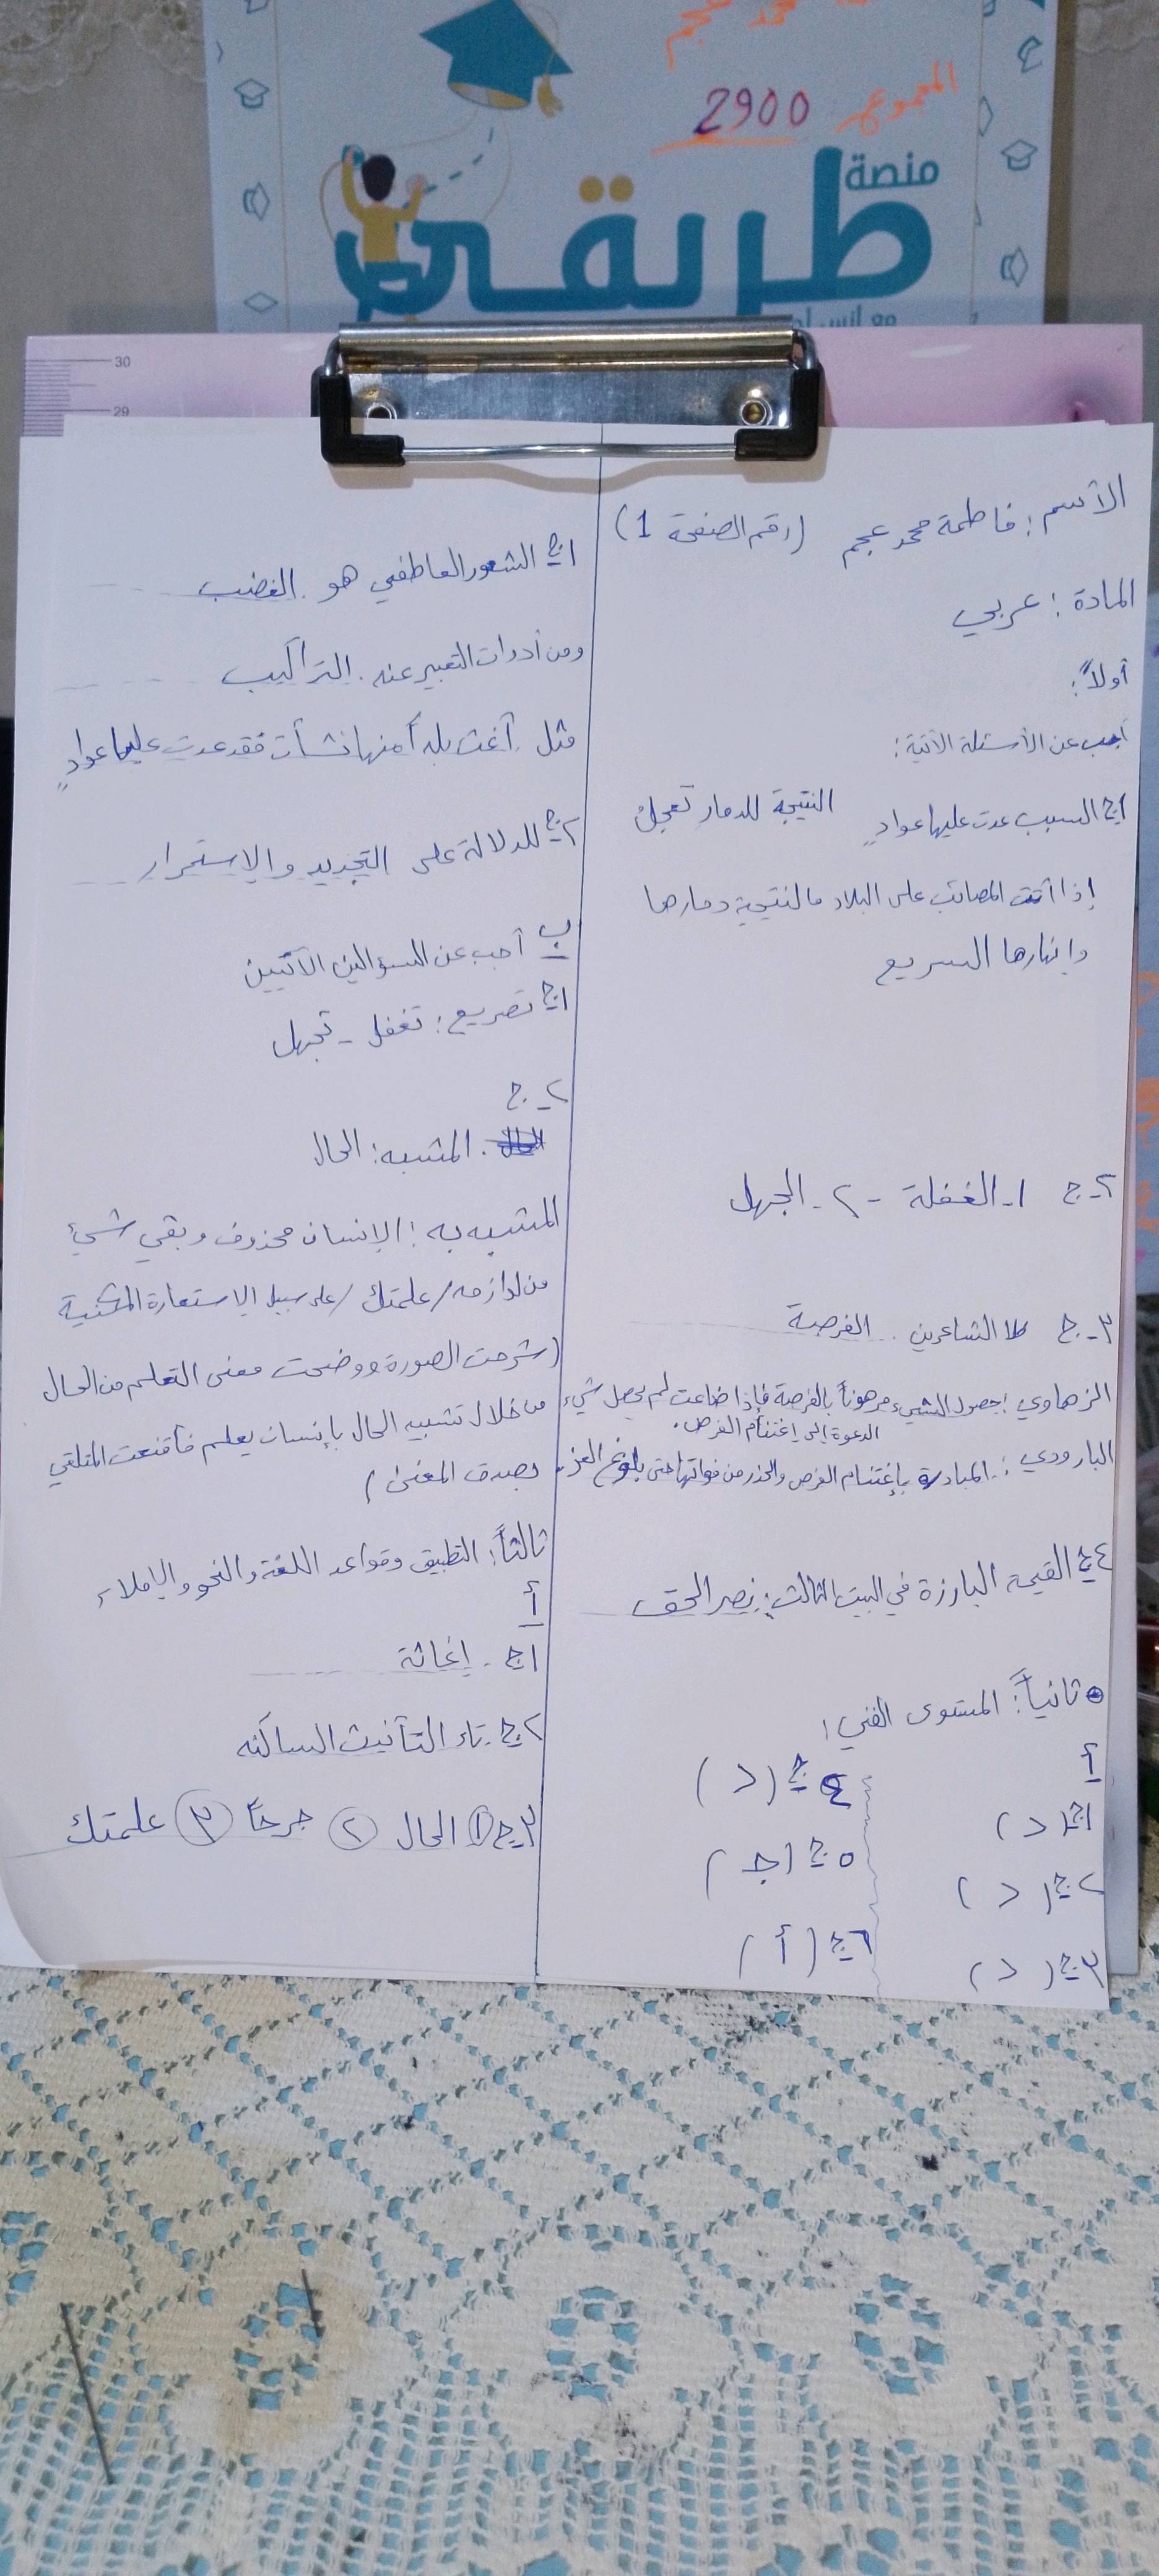 محمد عجم
المجموع 2900
منصة
طريقي
مع انس
30
29
الأسم : فاطمة محمد عجم (رقم الصفحة 1)
المادة : عربي
أولاً :
أجب عن الأسئلة الآتية :
ج1 السبب عدت عليها عوادٍ النتيجة للدمار تعجل
إذا أتت المصائب على البلاد مالنتيجة دمارها
وإنهارها السريع
ج2 1- الغفلة - 2- الجهل
3- ج كلا الشاعرين .. الفرصة
الزهاوي : حصول الشيء مرهوناً بالفرصة فإذا ضاعت لم يحصل شيء
الدعوة إلى إغتنام الفرص .
البارودي : المبادرة بإغتنام الفرص والحذر من فواتها حتى بلوغ العز .
ج4 القيمة البارزة في البيت الثالث : نصر الحق
ثانياً : المستوى الفني :
أ
ج1 ( د )
ج2 ( د )
ج3 ( د )
ج4 ( د )
ج5 ( جـ )
ج6 ( أ )
ج1 الشعور العاطفي هو . الغضب
ومن أدوات التعبير عنه . التراكيب
مثل . آغث بلداً منها نشأت فقد عدت عليها عوادٍ
ج2 للدلالة على التجديد والاستمرار
ب أجب عن السؤالين الآتيين
ج1 تصريع : تغفل - تجهل
2- ج
. المشبه : الحال
المشبه به : الإنسان محذوف وبقي شيئ
من لوازمه / علمتك / على سبيل الاستعارة المكنية
( شرحت الصورة ووضحت معنى التعلم من الحال
من خلال تشبيه الحال بإنسان يعلم فأقنعت المتلقي
بصدق المعنى )
ثالثاً : التطبيق وقواعد اللغة والنحو والإملاء
أ
ج1 . إغاثة
ج2 . تاء التأنيث الساكنه
ج3 ① الحال ② جرحاً ③ علمتك